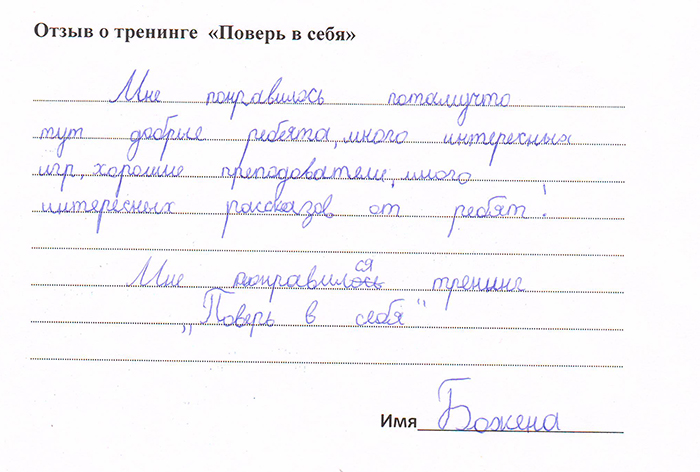 Отзыв о тренинге «Поверь в себя»
Мне понравилось потамучто
тут добрые ребята, много интересных
игр, хорошие преподователи, много
интересных рассказов от ребят!
Мне понравился тренинг
„Поверь в себя"
Имя Божена